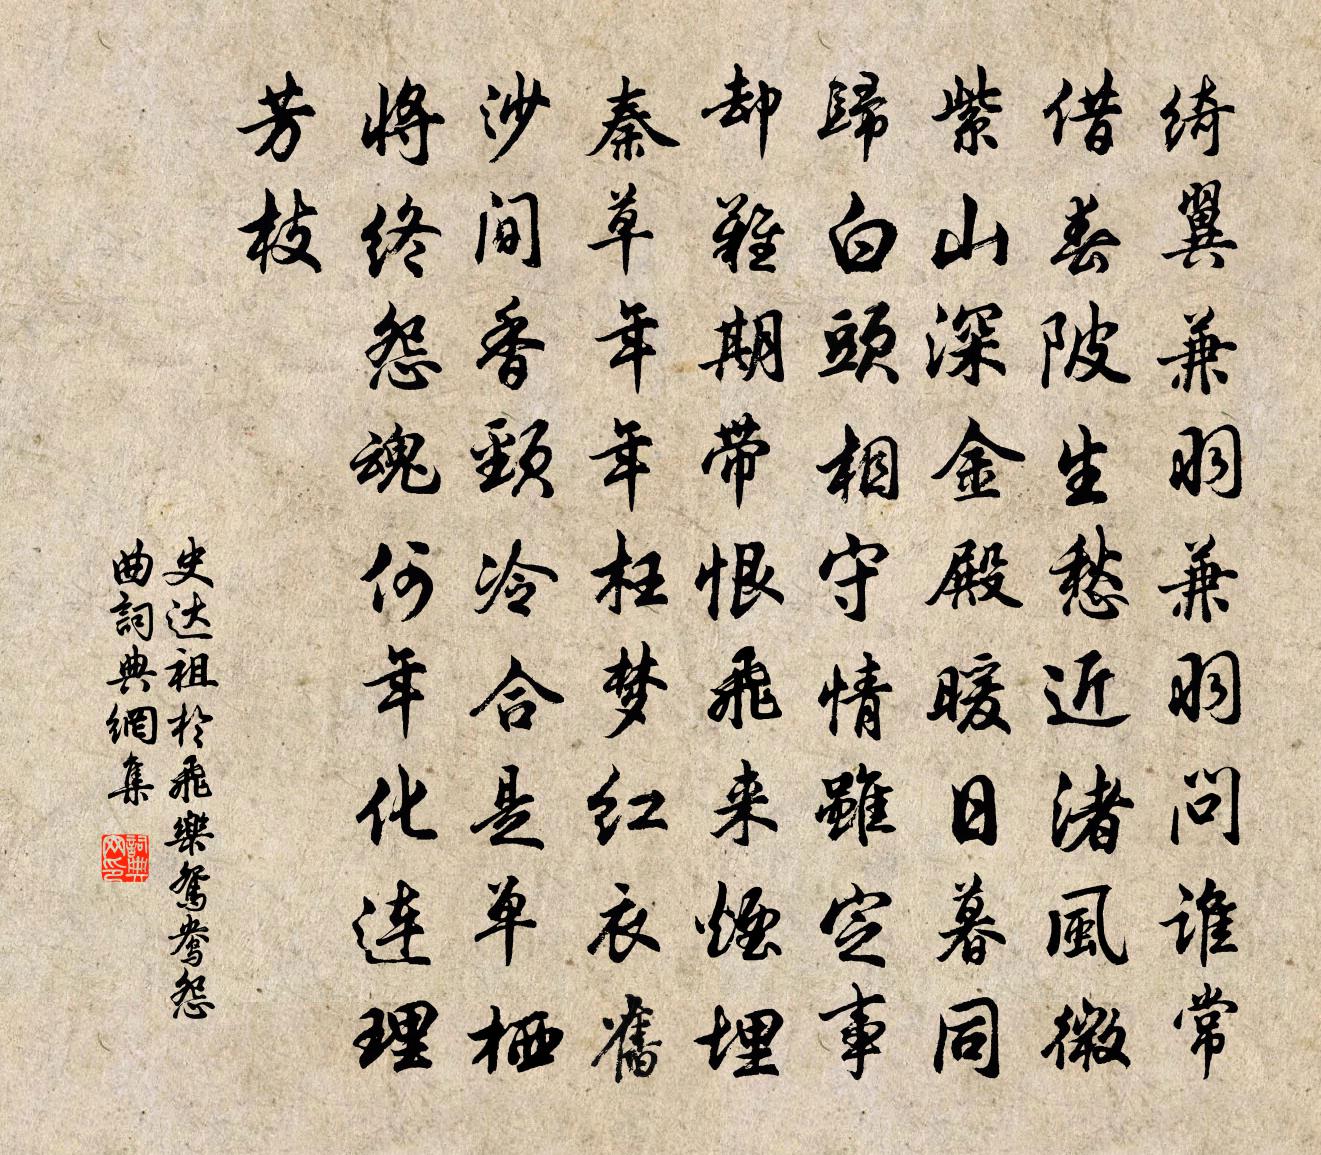 綺翼兼羽兼羽問誰常
借春陂生愁近渚風微
紫山深金殿暖日暮同
歸白頭相守情雖定事
却難期带恨飛来煙埋
秦草年年枉梦红衣舊
沙间香頸冷合是单栖
將终怨魂何年化连理
芳枝
史达祖於飛樂鴛鴦怨
曲詞典網集
詞典